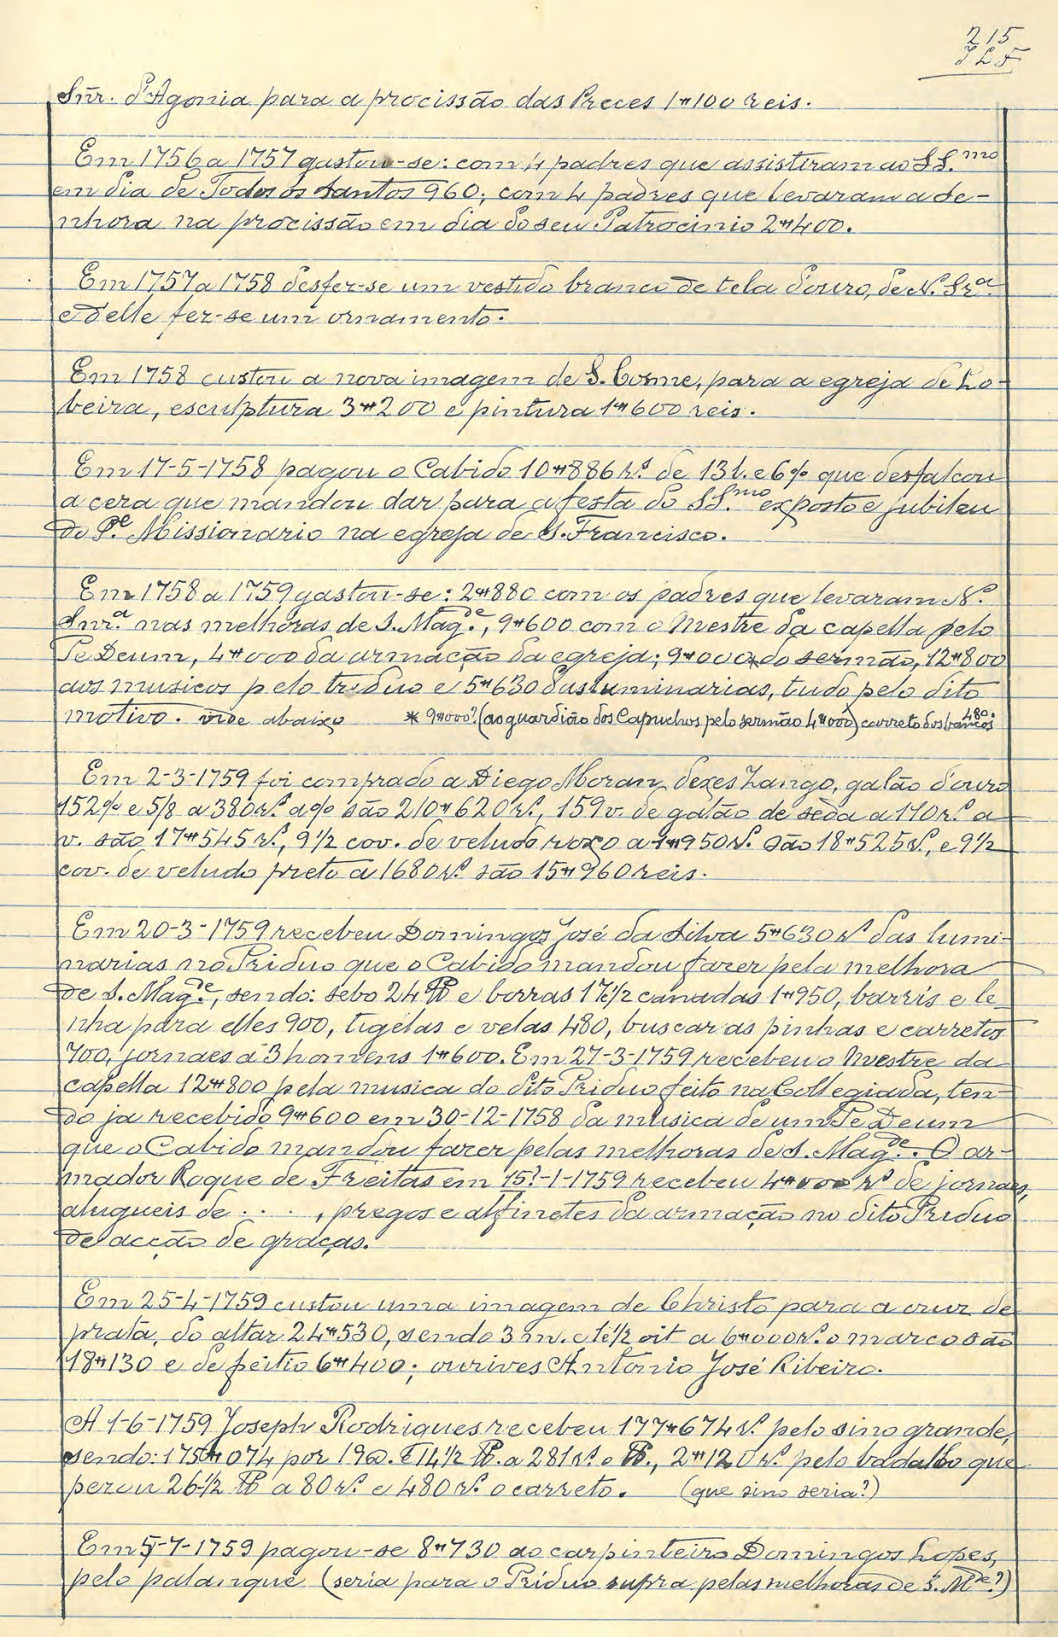 215
JLF
Snr. d'Agonia para a procissão das Preces 1$100 reis.
Em 1756 a 1757 gastou-se: com 4 padres que assistiram ao SS.mo
em dia de Todos os Santos 960; com 4 padres que levaram a Se-
nhora na procissão em dia do seu Patrocinio 2$400.
Em 1757 a 1758 desfez-se um vestido branco de tela d'ouro, de N. Sra.
e d'elle fez-se um ornamento.
Em 1758 custou a nova imagem de S. Cosme, para a egreja de Lo-
beira, esculptura 3$200 e pintura 1$600 reis.
Em 17-5-1758 pagou o Cabido 10$886 rs. de 13 l. e 6 % que desfalcou
a cera que mandou dar para a festa do SS.mo exposto e jubileu
do Pe. Missionario na egreja de S. Francisco.
Em 1758 a 1759 gastou-se: 2$880 com os padres que levaram N.
Snra. nas melhoras de S. Magde., 9$600 com o Mestre da capella pelo
Te Deum, 4$000 da armação da egreja; 9$000* do sermão, 12$800
aos musicos pelo triduo e 5$630 das luminarias, tudo pelo dito
motivo. vide abaixo * 9$000? (ao guardião dos Capuchos pelo sermão 4$000) carreto dos bancos 480.
Em 2-3-1759 foi comprado a Diego Moran, galão d'ouro
152 % e 5/8 a 380 rs. a % são 210$620 rs., 159 v. de galão de sêda a 110 rs. a
v. são 17$545 rs., 9 1/2 cov. de veludo roxo a 1$950 rs. são 18$525 rs., e 9 1/2
cov. de veludo preto a 1680 rs. são 15$960 reis.
Em 20-3-1759 recebeu Domingos José da Silva 5$630 rs. das lumi-
narias no Triduo que o Cabido mandou fazer pela melhora
de S. Magde., sendo: sebo 24 ℔ e borras 17 e 1/2 canadas 1$950, barris e le-
nha para elles 900, tigelas e velas 480, buscar as pinhas e carretos
700, jornaes a 3 homens 1$600. Em 27-3-1759 recebeu o Mestre da
capella 12$800 pela musica do dito Triduo feito na Collegiada, ten-
do ja recebido 9$600 em 30-12-1758 da musica de um Te Deum
que o Cabido mandou fazer pelas melhoras de S. Magde.. O ar-
mador Roque de Freitas em 15?-1-1759 recebeu 4$000 rs. de jornaes,
alugueis de . . . . , pregos e alfinetes da armação no dito Triduo
de acção de graças.
Em 25-4-1759 custou uma imagem de Christo para a cruz de
prata, do altar 24$530, sendo 3 m. e 1 e 1/2 oit a 6$000 rs. o marco são
18$130 e de feitio 6$400; ourives Antonio José Ribeiro.
A 1-6-1759 Joseph Rodrigues recebeu 177$674 rs. pelo sino grande,
sendo: 175$074 por 19@. e 14 1/2 ℔. a 281 rs. o ℔., 2$120 rs. pelo badalo que
pezou 26 1/2 ℔ a 80 rs. e 480 rs. o carreto. (que sino seria?)
Em 5-7-1759 pagou-se 8$730 ao carpinteiro Domingos Lopes,
pelo palanque (seria para o Triduo supra pelas melhoras de S. Mde.?)